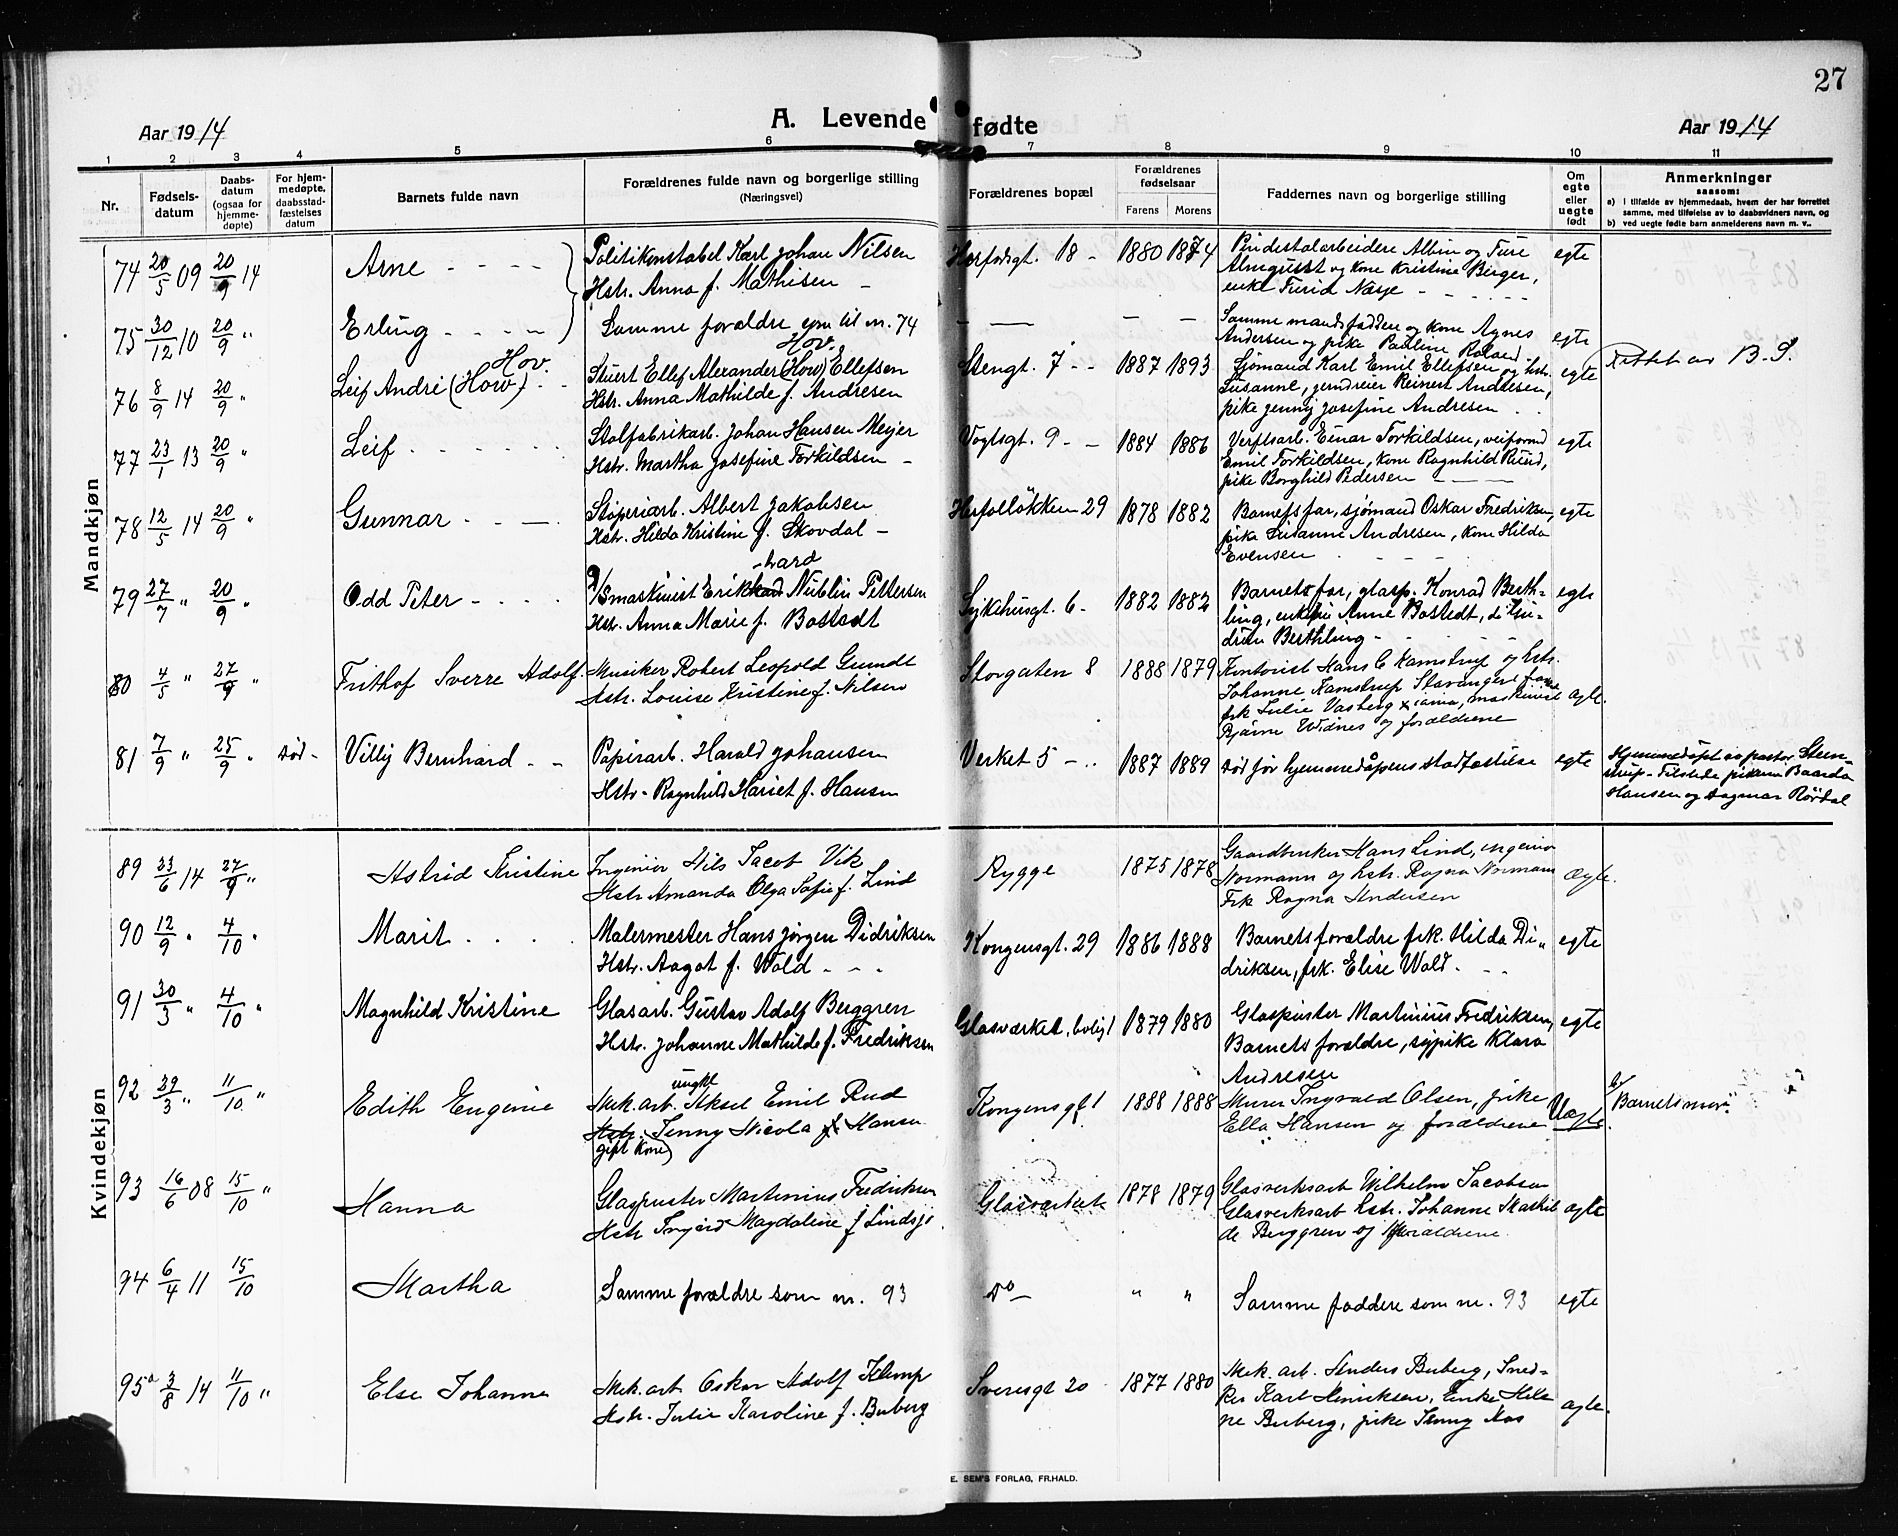 27
Aar 1914
A. Levende fødte
Aar 1914
1 2 3 4 5 6 7 8 9 10 11
Nr.
Fødsels-
datum
Daabs-
datum
(ogsaa for
hjemme-
døpte)
For hjem-
medøpte,
daabsstad-
fæstelses
datum
Barnets fulde navn
Forældrenes fulde navn og borgerlige stilling
(Næringsvei)
Forældrenes bopæl
Forældrenes
fødselsaar
Farens Morens
Faddernes navn og borgerlige stilling
Om
egte
eller
uegte
født
Anmerkninger
saasom:
a) i tilfælde av hjemmedaab, hvem der har forrettet
samme, med tilføielse av to daabsvidners navn, og
b) ved uegte fødte barn anmelderens navn m. v..
Mandkjøn
74 20/5 09 20/9 14 Arne Politikonstabel Karl Johan Nilsen 18 1880 1874 Albin og Ture egte
Hstr. Anna f. Mathisen og kone Kristine Birger,
enke Turid Næsje
75 30/12 10 20/9 " Erling Samme forældre som til nr. 74 Samme mandsfaddere og kone Agnes egte
Andersen og pike Pauline
76 8/9 14 20/9 " Leif Andre (How) Hov. Stuert Ellef Alexander (How) Hov. Ellefsen Stengt. 7 1887 1893 Sjømand Karl Emil Ellefsen og hstr. egte Rettet av B. S.
Hstr. Anna Mathilde f. Andresen Susanne, jerndreier Reinert Andresen,
pike Jenny Josefine Andresen
77 23/1 13 20/9 " Leif Stolfabrikarb. Johan Hansen Meyer Vogtsgt. 9 1884 1886 Verftsarb. Einar Torkildsen, veiformd egte
Hstr. Martha Josefine Torkildsen Emil Torkildsen, kone Ragnhild Ruud,
pike Borghild Pedersen
78 12/5 14 20/9 " Gunnar Støperiarb. Albert Jakobsen 29 1878 1882 Barnets far, sjømand Oskar Fredriksen, egte
Hstr. Hilda Kristine f. Skovdal pike Susanne Andresen, kone Hilda
Evensen
79 27/7 " 20/9 " Odd Peter D/Smaskinist Erikhard -hard Nublin Pettersen Sykehusgt. 6 1882 1882 Barnets far, glasp. Konrad Berth- egte
Hstr. Anna Marie f. Bostedt ling, enkefru Anne Bostedt, do Gu-
drun Berthling
80 4/5 " 27/9 " Frithof Sverre Adolf. Musiker Robert Leopold Gundt Storgaten 8 1888 1879 Kontorist Hans C Kamstrup og hstr. ægte.
Hstr. Louise Kristine f. Nilsen Johanne Kamstrup Stavanger
frk Julie Vasberg Xiania, maskinist
Bjarne Widnes og forældrene
81 7/9 " 25/9 " død Villy Bernhard Papirarb. Harald Johansen Verket 5 1887 1889 død før hjemmedåpens stadfæstelse egte Hjemmedøpt av pastor Steen-
Hstr. Ragnhild Hariet f. Hansen strup - Tilstede pikerne Baarda
Hansen og Dagmar Rørdal
Kvindekjøn
89 23/6 14 27/9 " Astrid Kristine Ingeniør Nils Jacob Vik Rygge 1875 1878 Gaardbruker Hans Lind, ingeniør ægte.
Hstr Amanda Olga Sofie f. Lind Normann og hstr. Ragna Normann
Frk Ragna Andersen
90 12/9 " 4/10 " Marit Malermester Hans Jørgen Didriksen Kongensgt. 29 1886 1888 Barnets forældre frk. Hilda Di- egte
Hstr. Aagot f. Wold driksen, frk. Elise Wold.
91 30/3 " 4/10 " Magnhild Kristine Glasarb. Gustav Adolf Berggren Glasværket, bolig 1 1879 1880 Glaspuster Martinius Fredriksen, egte
Hstr. Johanne Mathilde f. Fredriksen Barnets forældre, sypike Klara
Andresen
92 29/3 " 11/10 " Edith Eugenie Mek. arb. ungkl Aksel Emil Rud Kongensgt 1 1888 1888 Murer Ingvald Olsen, pike Uægte. b/ "Barnets mor".
Hstr. Jenny Nicola f. Hansen Ella Hansen og forældrene
gift kone)
93 16/6 08 15/10 " Hanna Glaspuster Martinius Fredriksen Glasværket 1878 1879 Glasverksarb Wilhelm Jacobsen ægte
Hstr Ingrid Magdaline f Lindsjø. Glasverksarb hstr. Johanne Mathil
de Berggren og forældrene
94 6/4 11 15/10 Martha Samme forældre som nr. 93 Do " " Samme faddere som nr. 93 egte
95 3/8 14 11/10 " Else Johanne Mek. arb Oskar Adolf Klemp Sverresgt 20 1877 1880 Mek. arb. Anders Buberg, Sned- ægte.
Hstr. Julie Karoline f. Buberg ker Karl Henriksen, Enke Hele
ne Buberg, pike Jenny Aas
E. SEM'S FORLAG, FR.HALD.